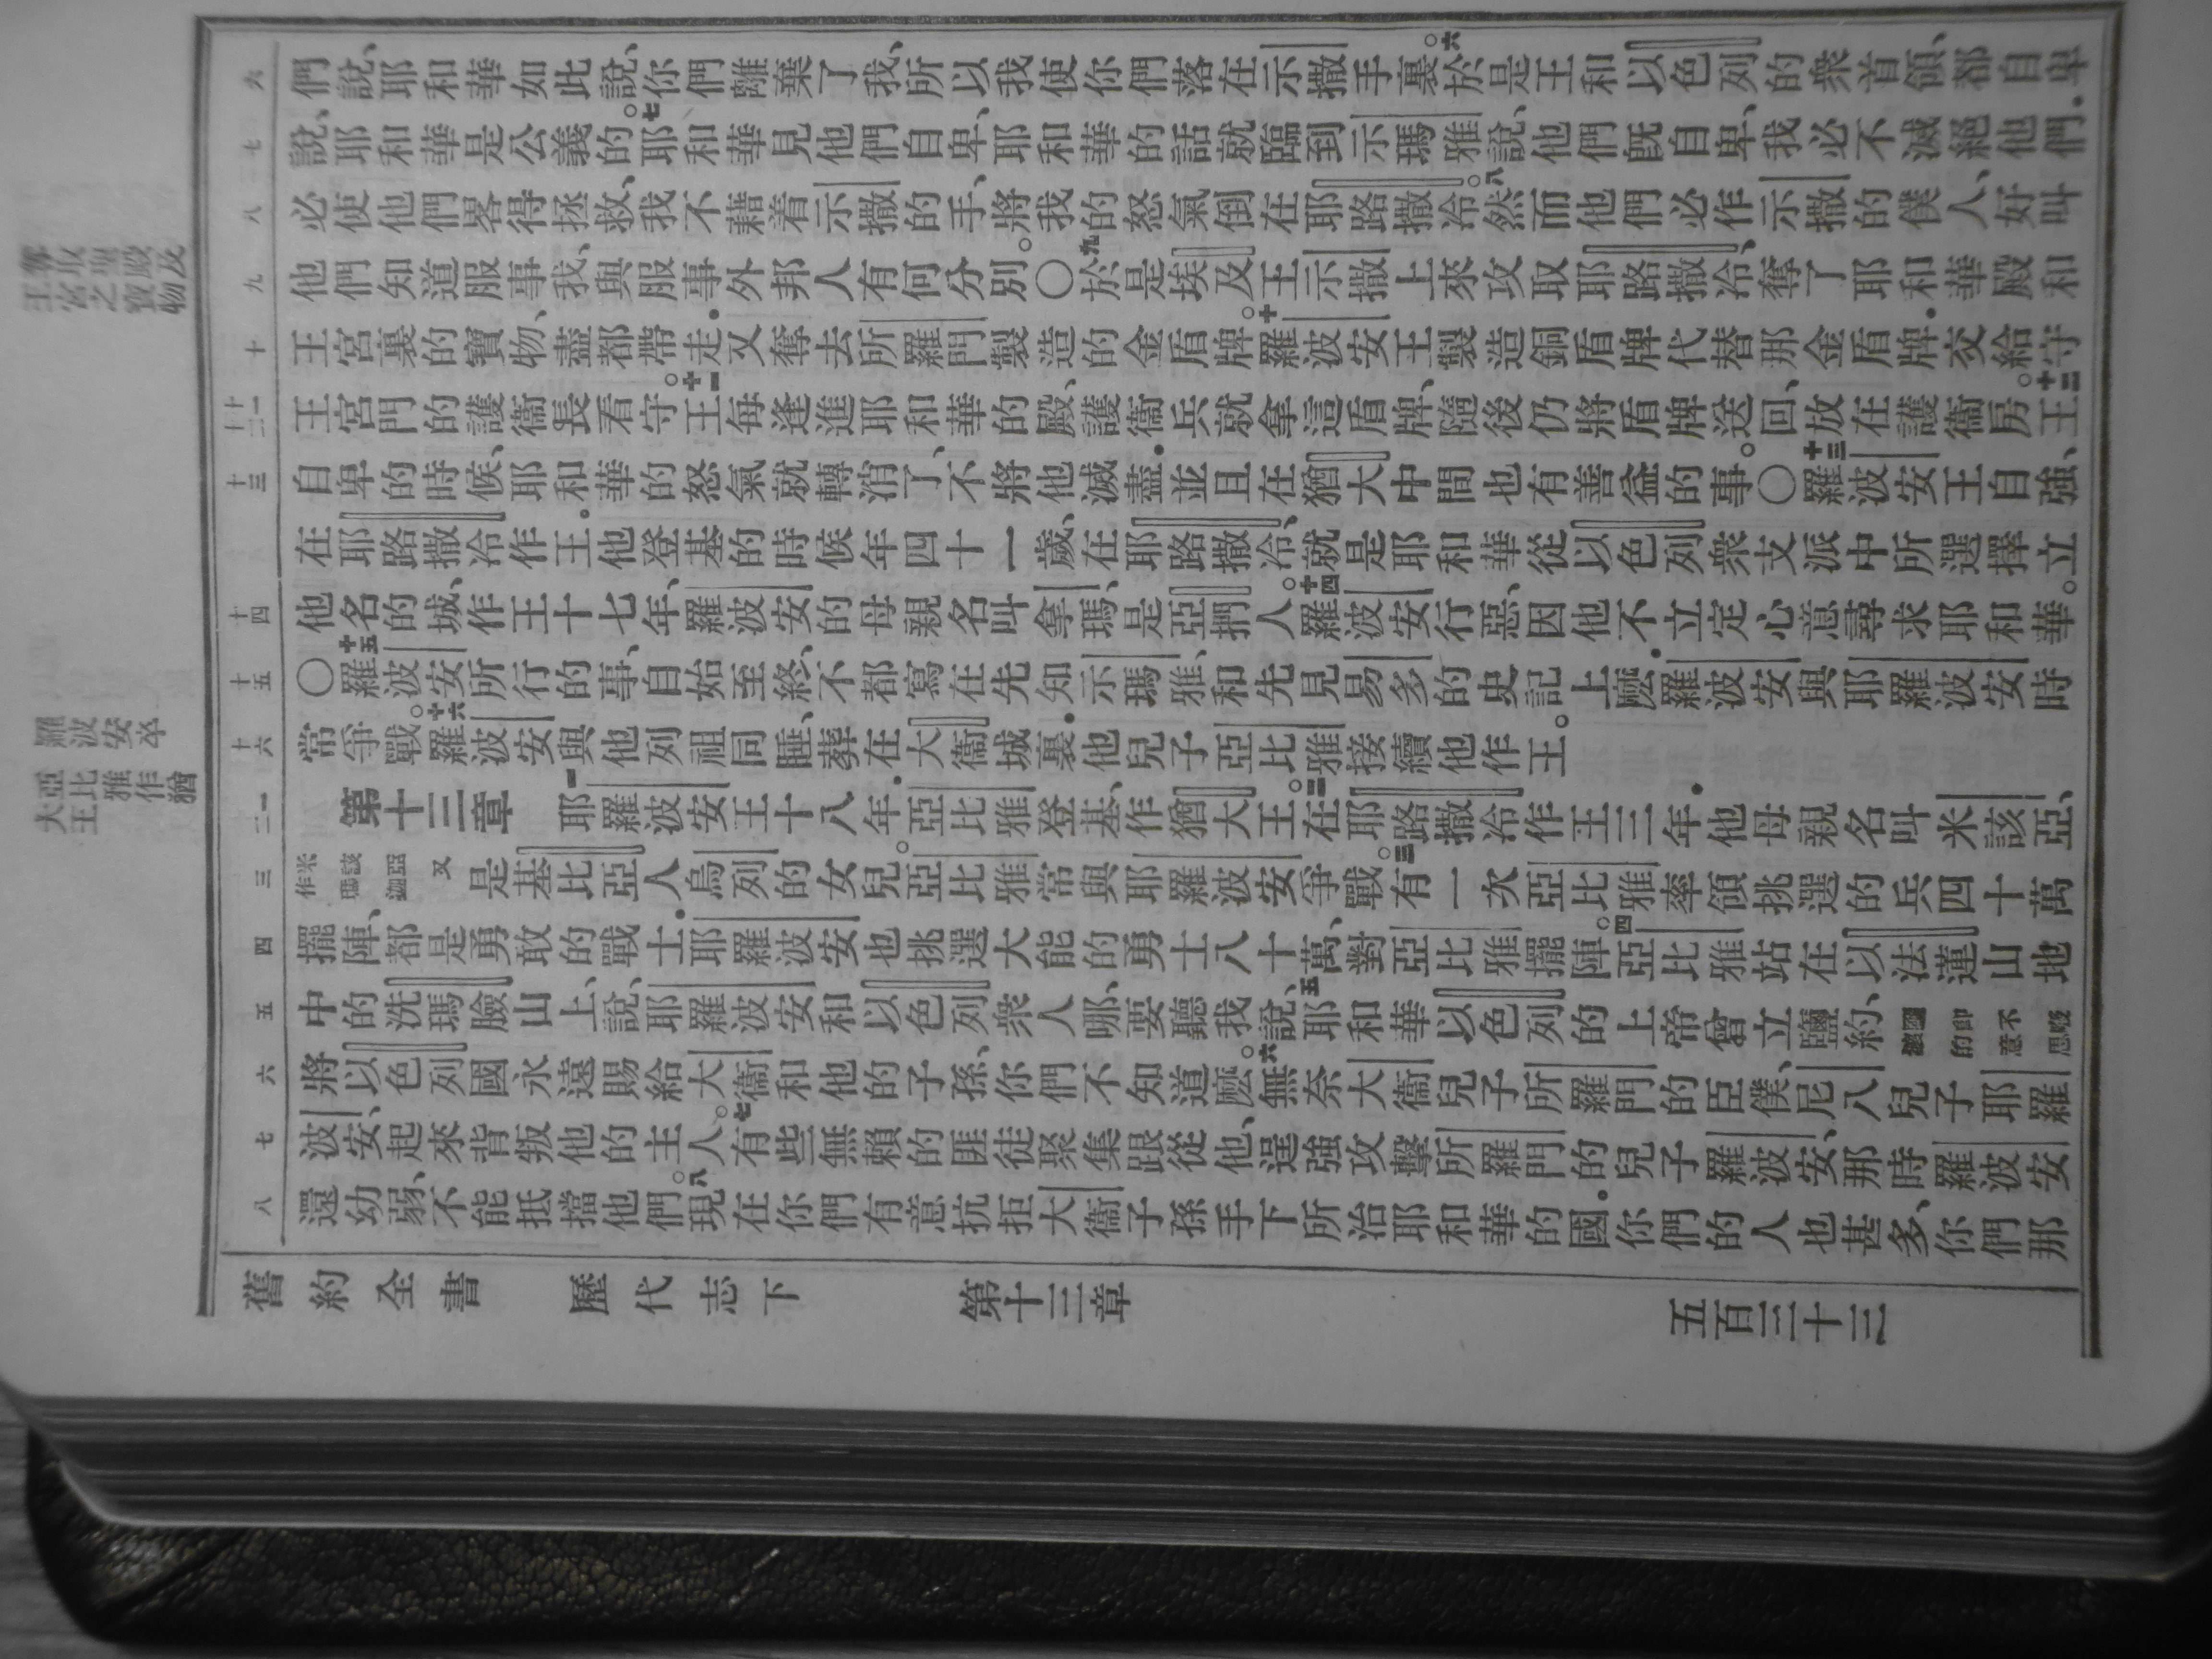 們說、耶和華如此說、你們離棄了我、所以我使你們落在示撒手裏。六於是王和以色列的衆首領、都自卑
說、耶和華是公義的。七耶和華見他們自卑、耶和華的話就臨到示瑪雅說、他們旣自卑、我必不滅絕他們.
必使他們畧得拯救、我不藉着示撒的手、將我的怒氣倒在耶路撒冷。八然而他們必作示撒的僕人、好叫
他們知道服事我、與服事外邦人有何分別。〇九於是埃及王示撒上來攻取耶路撒冷、奪了耶和華殿和
王宮裏的寶物、盡都帶走.又奪去所羅門製造的金盾牌。十羅波安王製造銅盾牌代替那金盾牌.交給守
王宮門的護衞長看守。十一王每逢進耶和華的殿、護衞兵就拿這盾牌、隨後仍將盾牌送回、放在護衞房。十二王
自卑的時候、耶和華的怒氣就轉消了、不將他滅盡.並且在猶大中間也有善益的事。〇十三羅波安王自強、
在耶路撒冷作王。他登基的時候年四十一歲、在耶路撒冷、就是耶和華從以色列衆支派中所選擇立
他名的城、作王十七年、羅波安的母親名叫拿瑪、是亞捫人。十四羅波安行惡、因他不立定心意尋求耶和華。
〇十五羅波安所行的事、自始至終、不都寫在先知示瑪雅、和先見易多的史記上麽.羅波安與耶羅波安時
常爭戰。十六羅波安與他列祖同睡、葬在大衞城裏.他兒子亞比雅接續他作王。
第十三章 一耶羅波安王十八年.亞比雅登基、作猶大王。二在耶路撒冷作王三年.他母親名叫米該亞、
米該亞又作瑪迦是基比亞人烏列的女兒。亞比雅常與耶羅波安爭戰。三有一次亞比雅率領挑選的兵四十萬
擺陣、都是勇敢的戰士.耶羅波安也挑選大能的勇士八十萬、對亞比雅擺陣。四亞比雅站在以法蓮山地
中的洗瑪臉山上、說、耶羅波安和以色列衆人哪、要聽我說、五耶和華以色列的上帝曾立鹽約、鹽卽不廢壞的意思
將以色列國永遠賜給大衞和他的子孫、你們不知道麽。六無奈大衞兒子所羅門的臣僕、尼八兒子耶羅
波安、起來背叛他的主人。七有些無賴的匪徒聚集跟從他、逞強攻擊所羅門的兒子羅波安、那時羅波安
還幼弱、不能抵擋他們。八現在你們有意抗拒大衞子孫手下所治耶和華的國.你們的人也甚多、你們那
舊約全書 歷代志下 第十三章 五百三十三
六
七
八
九
十
十一
十二
十三
十四
十五
十六
一
二
三
四
五
六
七
八
奪取聖殿及
王宮之寶物
羅波安卒
亞比雅作猶
大王